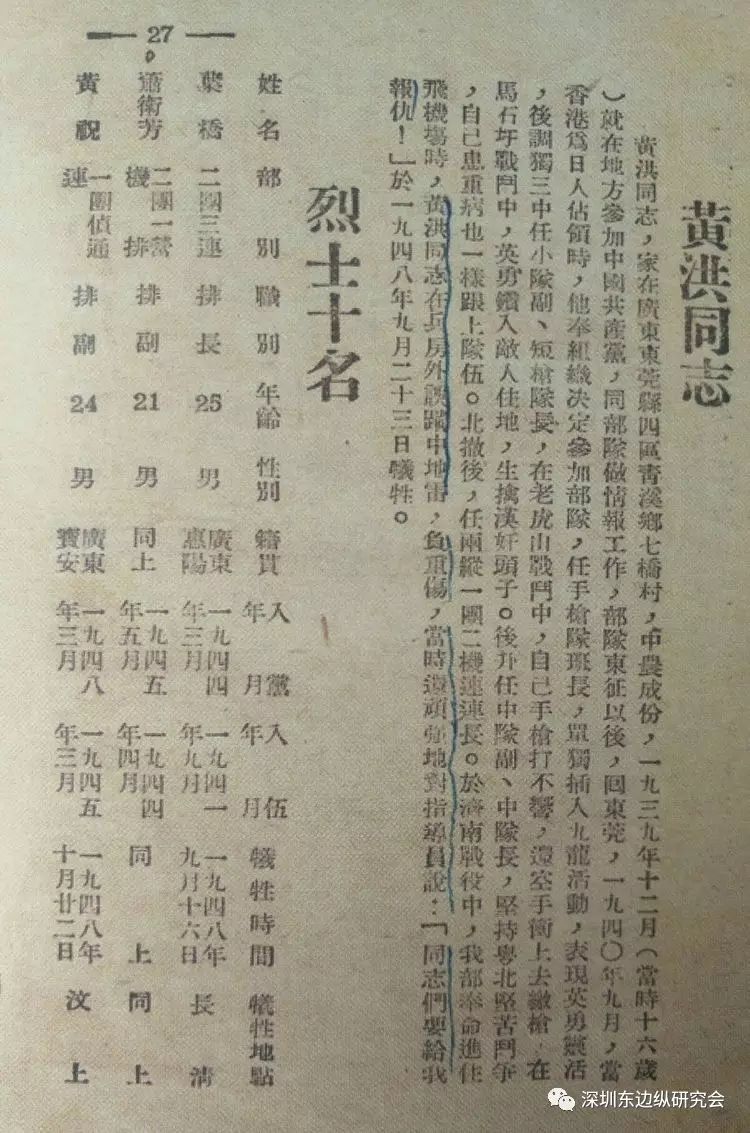 黃洪同志
黃洪同志，家在廣東東莞縣四區青溪鄉七橋村，中農成份，一九三九年十二月（當時十六歲
）就在地方參加中國共產黨，同部隊做情報工作，部隊東征以後，囘東莞，一九四〇年九月，當
香港爲日人佔領時，他奉組織决定參加部隊，任手槍隊班長，單獨插入九龍活動，表現英勇靈活
，後調獨三中任小隊副、短槍隊長，在老虎山戰鬥中，自己手槍打不響，還空手衝上去繳槍，在
馬石圩戰鬥中，英勇鑽入敵人住地，生擒漢奸頭子。後升任中隊副、中隊長，堅持粵北堅苦鬥爭
，自己患重病也一樣跟上隊伍。北撤後，任兩縱一團二機連連長。於濟南戰役中，我部奉命進住
飛機塲時，黃洪同志在兵房外誤踏中地雷，負重傷，當時還頑强地對指導員說：「同志們要給我
報仇！」於一九四八年九月二十三日犧牲。
烈士十名
姓名 部別 職別 年齡 性別 籍貫 入黨年月 入伍年月 犧牲時間 犧牲地點
葉橋 二團三連 排長 25 男 廣東惠陽 一九四四年三月 一九四一年九月 一九四八年九月十六日 長清
蕭衛芳 二團一營機排 排副 21 男 同上 一九四五年五月 一九四四年四月 同上 同上
黃祝 一團偵通連 排副 24 男 廣東寶安 一九四八年三月 一九四五年三月 一九四八年十月廿二日 汶上
27
深圳东边纵研究会